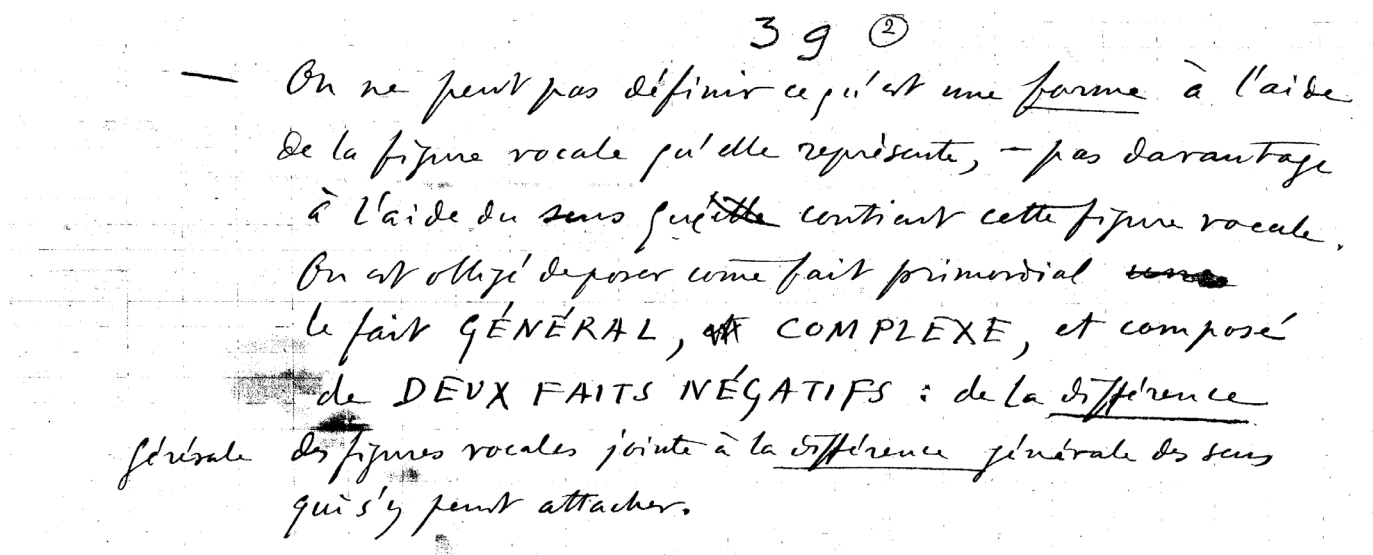 39 ②
— On ne peut pas définir ce qu'est une forme à l'aide
de la figure vocale qu'elle représente, – pas davantage
à l'aide du sens que contient cette figure vocale.
On est obligé de poser come fait primordial
le fait GÉNÉRAL, COMPLEXE, et composé
de DEUX FAITS NÉGATIFS : de la différence
générale des figures vocales jointe à la différence générale des sens
qui s'y peut attacher.